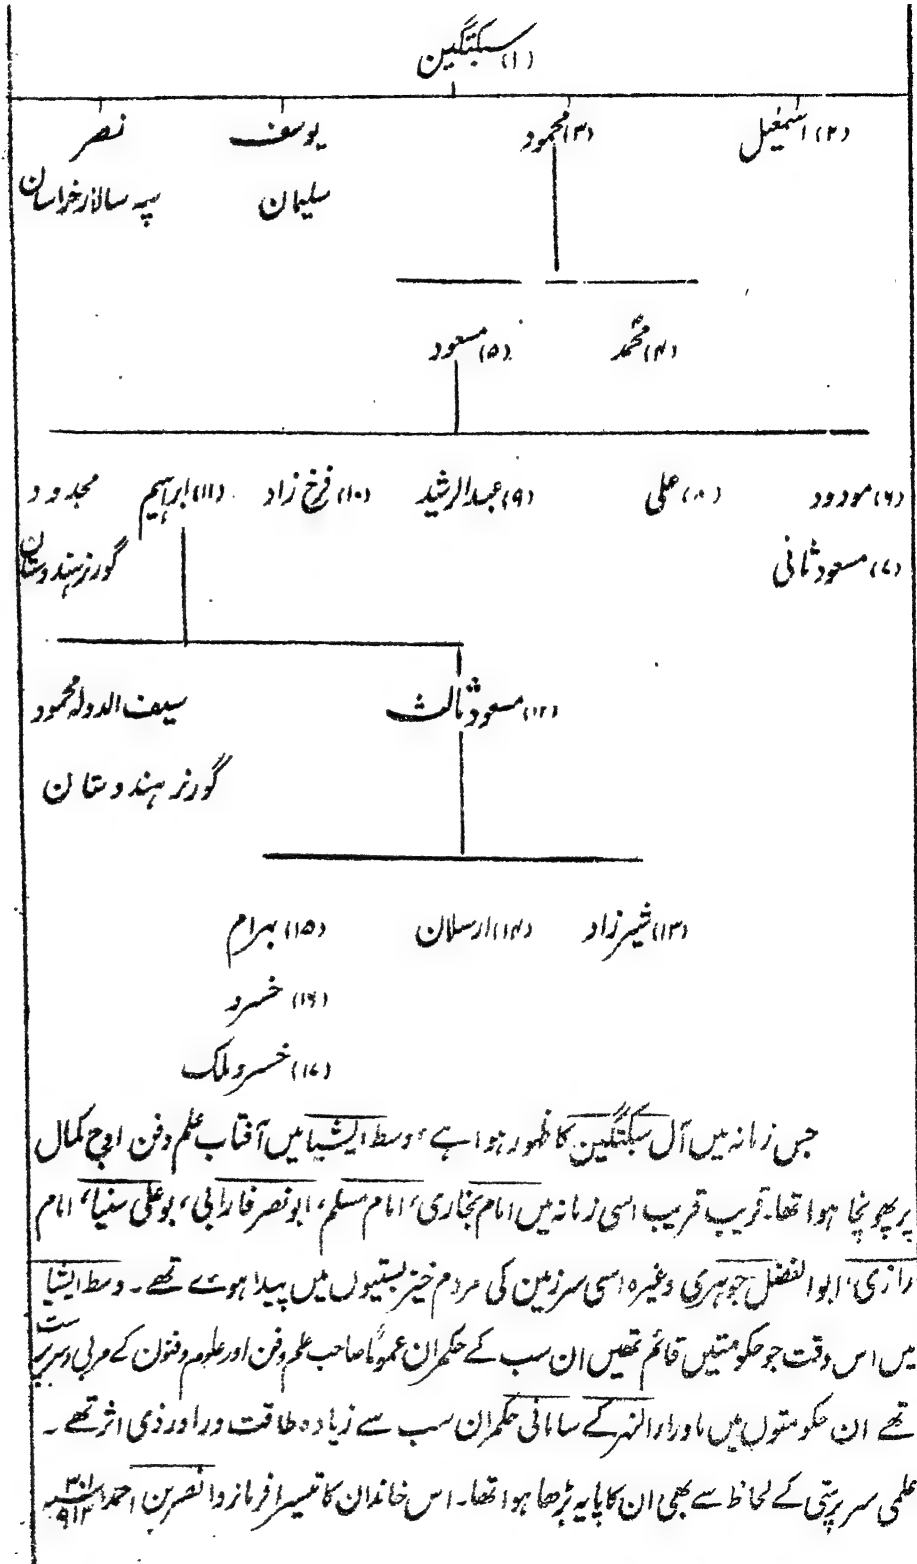 (۱) سبکتگین
(۲) اسمٰعیل (۳) محمود یوسف نصر
سلیمان سپہ سالار خراسان
(۴) محمد (۵) مسعود
(۶) مودود (۸) علی (۹) عبدالرشید (۱۰) فرخ زاد (۱۱) ابراہیم مجدود
(۷) مسعود ثانی گورنر ہندوستان
(۱۲) مسعود ثالث سیف الدولہ محمود
گورنر ہندوستان
(۱۳) شیرزاد (۱۴) ارسلان (۱۵) بہرام
(۱۶) خسرو
(۱۷) خسرو ملک
جس زمانہ میں آل سبکتگین کا ظہور ہوا ہے، وسط ایشیا میں آفتاب علم و فن اوج کمال
پر پھونچا ہوا تھا۔ قریب قریب اسی زمانہ میں امام بخاری، امام مسلم، ابو نصر فارابی، بو علی سینا، امام
رازی، ابوالفضل جوہری وغیرہ اسی سرزمین کی مردم خیز بستیوں میں پیدا ہوے تھے۔ وسط ایشیا
میں اس وقت جو حکومتیں قائم تھیں ان سب کے حکمران عموماً صاحب علم و فن اور علوم و فنون کے مربی و سرپرست
تھے ان حکومتوں میں ماوراءالنہر کے سامانی حکمران سب سے زیادہ طاقت ور اور ذی اثر تھے۔
علمی سرپرستی کے لحاظ سے بھی ان کا پایہ بڑھا ہوا تھا۔ اس خاندان کا تیسرا فرمانروا نصر بن احمد ۳۰۱ ۹۱۳